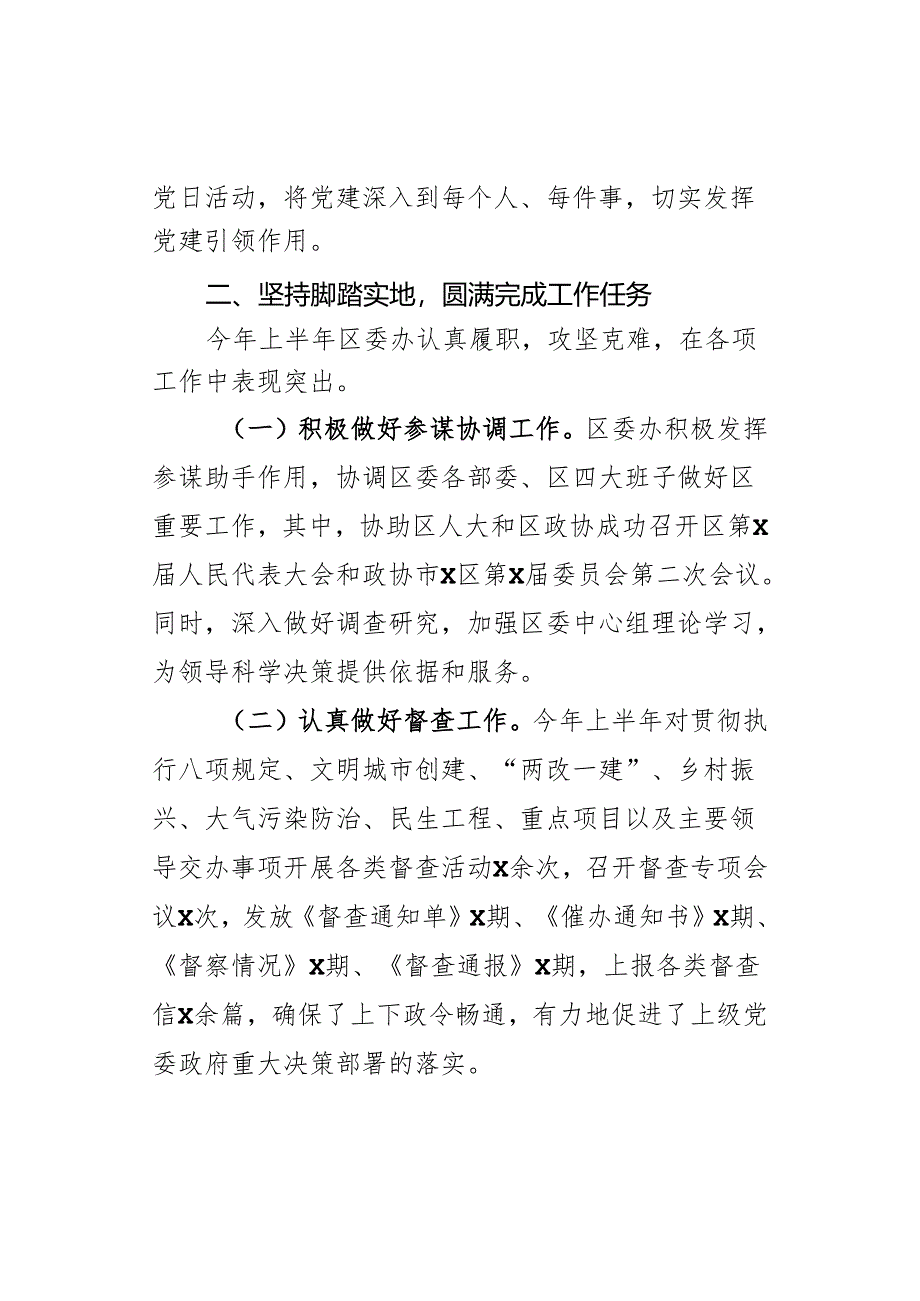 党日活动，将党建深入到每个人、每件事，切实发挥
党建引领作用。
二、坚持脚踏实地，圆满完成工作任务
今年上半年区委办认真履职，攻坚克难，在各项
工作中表现突出。
（一）积极做好参谋协调工作。区委办积极发挥
参谋助手作用，协调区委各部委、区四大班子做好区
重要工作，其中，协助区人大和区政协成功召开区第X
届人民代表大会和政协市X区第X届委员会第二次会议。
同时，深入做好调查研究，加强区委中心组理论学习，
为领导科学决策提供依据和服务。
（二）认真做好督查工作。今年上半年对贯彻执
行八项规定、文明城市创建、“两改一建”、乡村振
兴、大气污染防治、民生工程、重点项目以及主要领
导交办事项开展各类督查活动X余次，召开督查专项会
议X次，发放《督查通知单》X期、《催办通知书》X期、
《督察情况》X期、《督查通报》X期，上报各类督查
信X余篇，确保了上下政令畅通，有力地促进了上级党
委政府重大决策部署的落实。